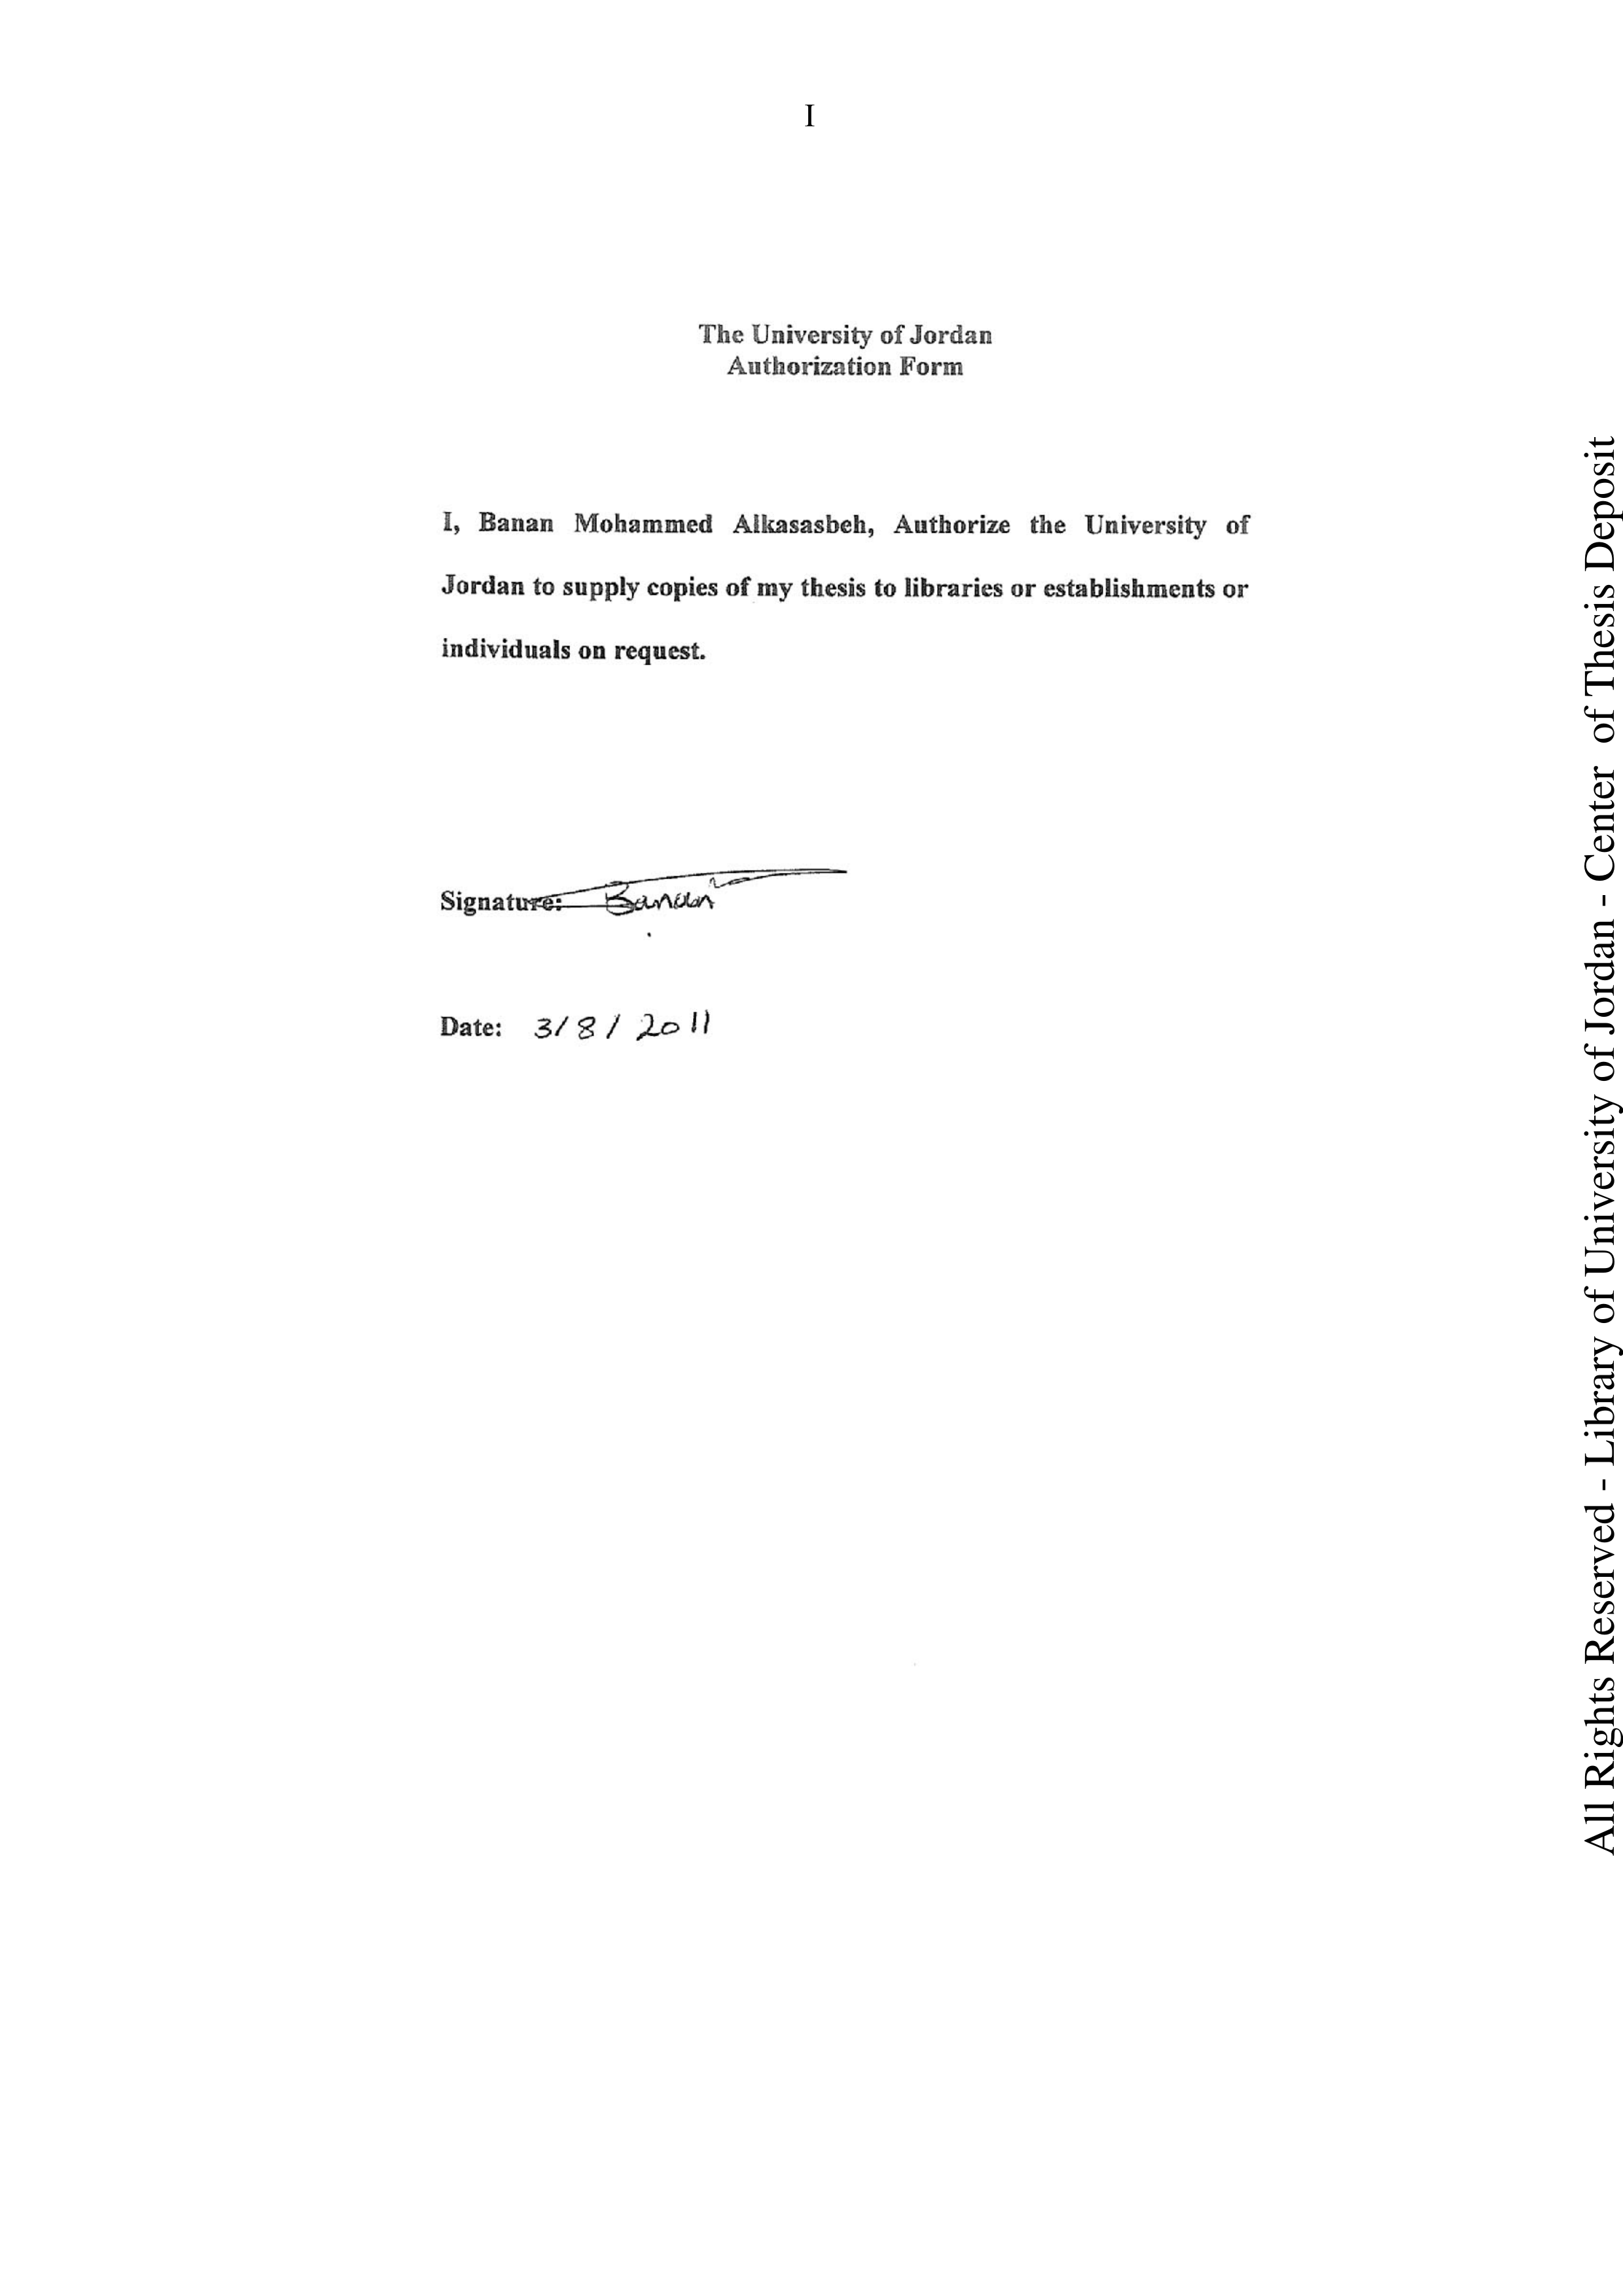 I
The University of Jordan
Authorization Form
I, Banan Mohammed Alkasasbeh, Authorize the University of
Jordan to supply copies of my thesis to libraries or establishments or
individuals on request.
Signature: Banan
Date: 3/8/2011
All Rights Reserved - Library of University of Jordan - Center of Thesis Deposit